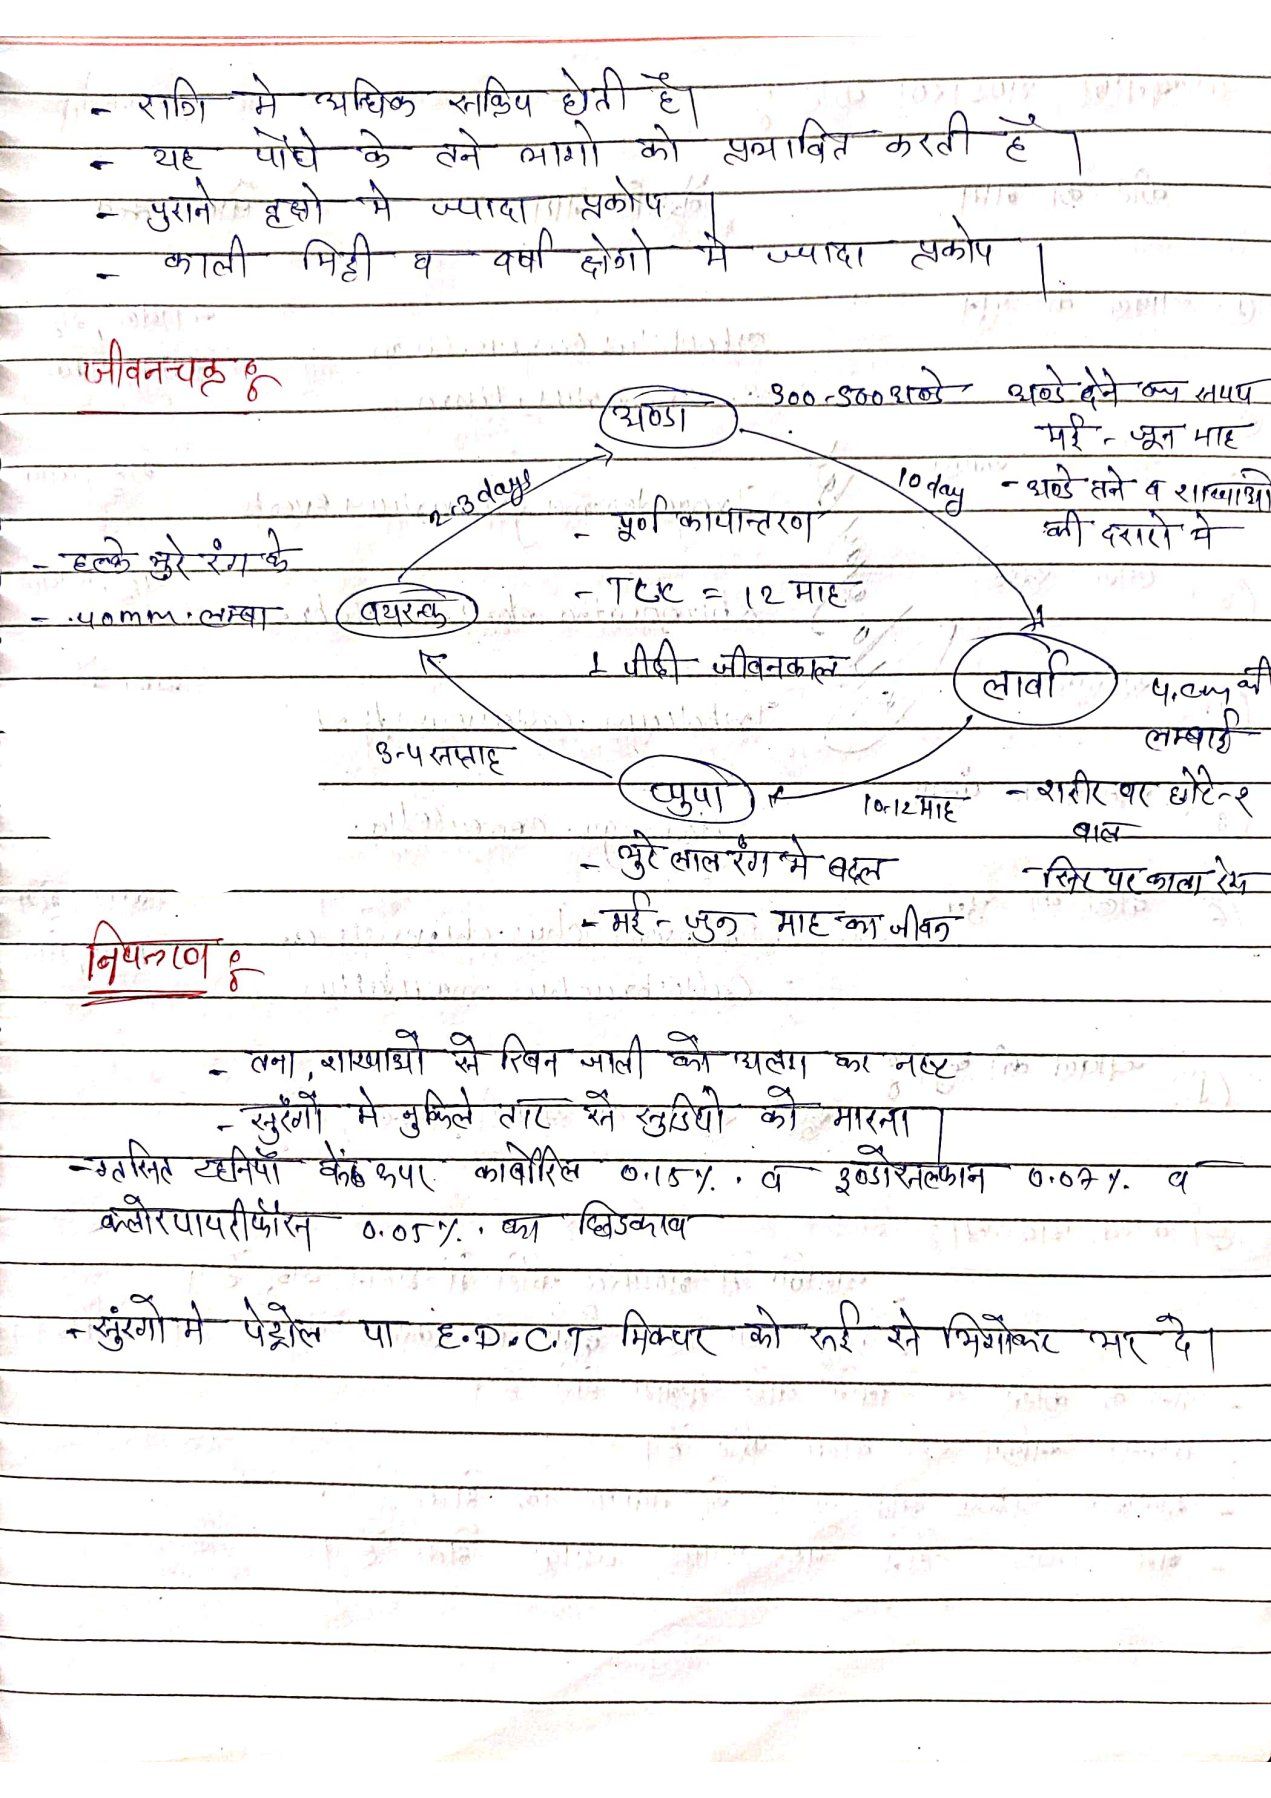 - रात्रि मे अधिक सक्रिय होती है।
- यह पौधे के तने भागो को प्रभावित करती है।
- पुराने वृक्षो मे ज्यादा प्रकोप।
- काली मिट्टी व वर्षा क्षेत्रो मे ज्यादा प्रकोप।
जीवनचक्र :
अण्डा
300-500 अण्डे - अण्डे देने का समय
मई - जून माह
10 day
- अण्डे तने व शाखाओ
की दरारो मे
2-3 days
- पूर्ण कायान्तरण
- हल्के भुरे रंग के
- 40mm. लम्बा
वयस्क
- TLC = 12 माह
1 पीढी जीवनकाल
लार्वा
4.cm की
लम्बाई
3-4 सप्ताह
प्युपा
10-12 माह
- शरीर पर छोटे-२
बाल
- भुरे लाल रंग मे बदल
- सिर पर काला
- मई - जुन माह का जीवन
नियन्त्रण :
- तना, शाखाओ से रिबन जाली को अलग कर नष्ट
- सुरंगों मे नुकिले तार से सुडियो को मारना।
- ग्रसित टहनियाँ के ऊपर कार्बोरिल 0.15%. व इण्डोसल्फान 0.07%. व
क्लोरपायरीफॉस 0.05%. का छिडकाव
- सुंरगो मे पेट्रोल या E.D.C.T मिक्चर को रूई से भिगोकर भर दे।